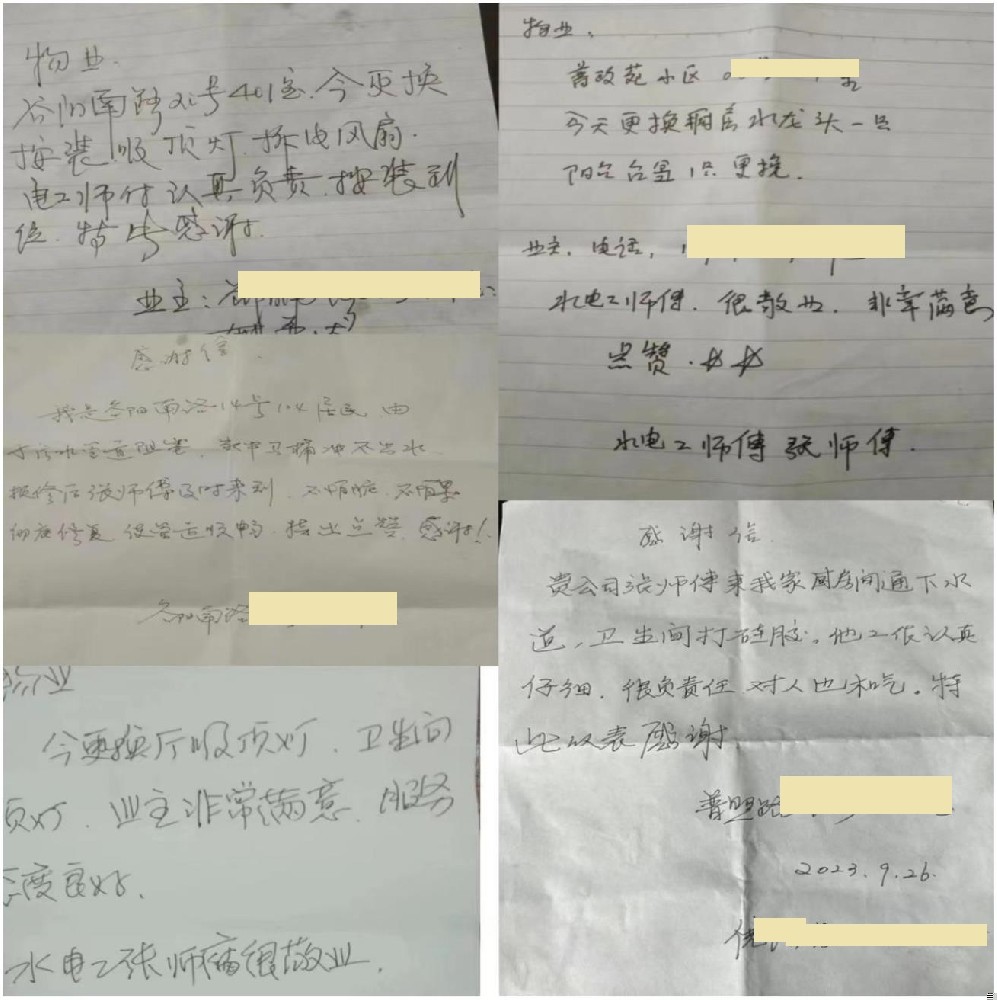 物业.
谷阳南路21号401室.今更换
按装吸顶灯.排气风扇
电工师付认真负责.按装到
位.特此感谢.
业主:
感谢信.
我是谷阳南路14号104居民,由
于污水管道阻塞,家中马桶冲不出水
报修后张师傅及时来到,不怕脏,不怕累
彻底修复使管道顺畅.提出点赞.感谢!
谷阳南路
物业
今更换厅吸顶灯、卫生间
顶灯.业主非常满意.服务
态度良好.
水电工张师傅很敬业.
物业,
普政苑小区
今天更换铜层水龙头一只
阳台台盆1只更换.
业主.电话,
水电工师傅.很敬业.非常满意
点赞.
水电工师傅 张师傅.
感谢信.
贵公司派师傅来我家厨房间通下水
道,卫生间打硅胶。他工作认真
仔细.很负责任 对人也和气。特
此以表感谢
普照路
2023.9.26.